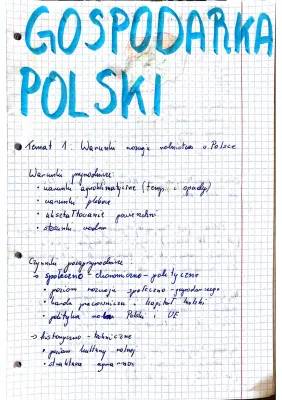 GOSPODARKA
POLSKI
Temat 1: Warunki rozwoju rolnictwa w Polsce
Warunki przyrodnicze:
• warunki agroklimatyczne (temp. i opady)
• warunki glebowe
• ukształtowanie powierzchni
• stosunki wodne
Czynniki pozaprzyrodnicze:
społeczno-ekonomiczno-polityczne
• poziom rozwoju społeczno-gospodarczego
• kapitał ludzki
• polityka Polski i UE
→ historyczno-techniczne
• poziom kultury rolnej
• struktura agrarna